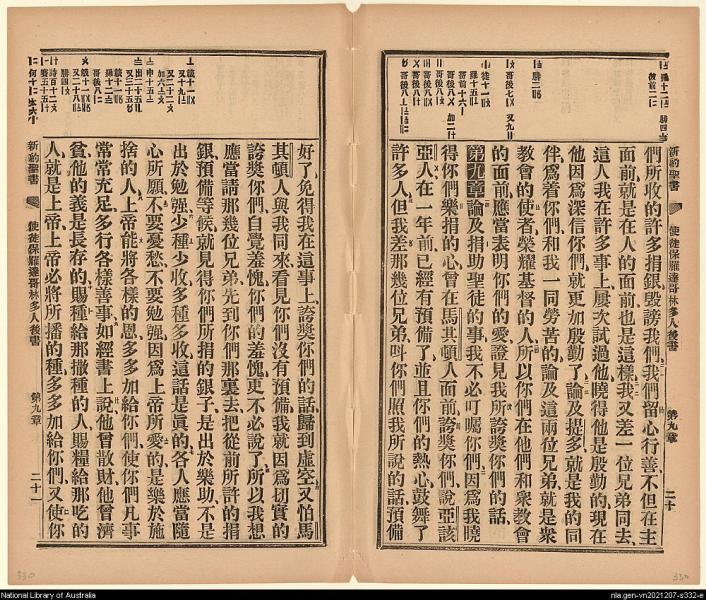 新約聖書
使徒保羅達哥林多人後書
第九章
二十
們所收的許多捐銀毀謗我們我們留心行善不但在主
面前就是在人的面前也是這樣我又差一位兄弟同去
這人我在許多事上屢次試過他曉得他是殷勤的現在
他因爲深信你們就更加殷勤了論及提多就是我的同
伴爲着你們和我一同勞苦的論及這兩位兄弟就是衆
教會的使者榮耀基督的人所以你們在他們和衆教會
的面前應當表明你們的愛證見我所誇獎你們的話
第九章論及捐助聖徒的事我不必叮囑你們因爲我曉
得你們樂捐的心曾在馬其頓人面前誇獎你們說亞該
亞人在一年前已經有預備了並且你們的熱心鼓舞了
許多人但我差那幾位兄弟叫你們照我所說的話預備
好了免得我在這事上誇獎你們的話歸到虛空又怕馬
其頓人與我同來看見你們沒有預備我就因爲切實的
誇獎你們自覺羞愧你們的羞愧更不必說了所以我想
應當請那幾位兄弟先到你們那裏去把從前所許的捐
銀預備等候就見得你們所捐的銀子是出於樂助不是
出於勉强少種少收多種多收這話是眞的各人應當隨
心所願不要憂愁不要勉强因爲上帝所愛的是樂於施
捨的人上帝能將各樣的恩多多加給你們使你們凡事
常常充足多行各樣善事如經書上說他曾散財他曾濟
貧他的義是長存的賜種給那撒種的人賜糧給那吃的
人就是上帝上帝必將所播的種多多加給你們又使你
新約聖書
使徒保羅達哥林多人後書
第九章
二十一
330
330
National Library of Australia
nla.gen-vn2021207-s332-e